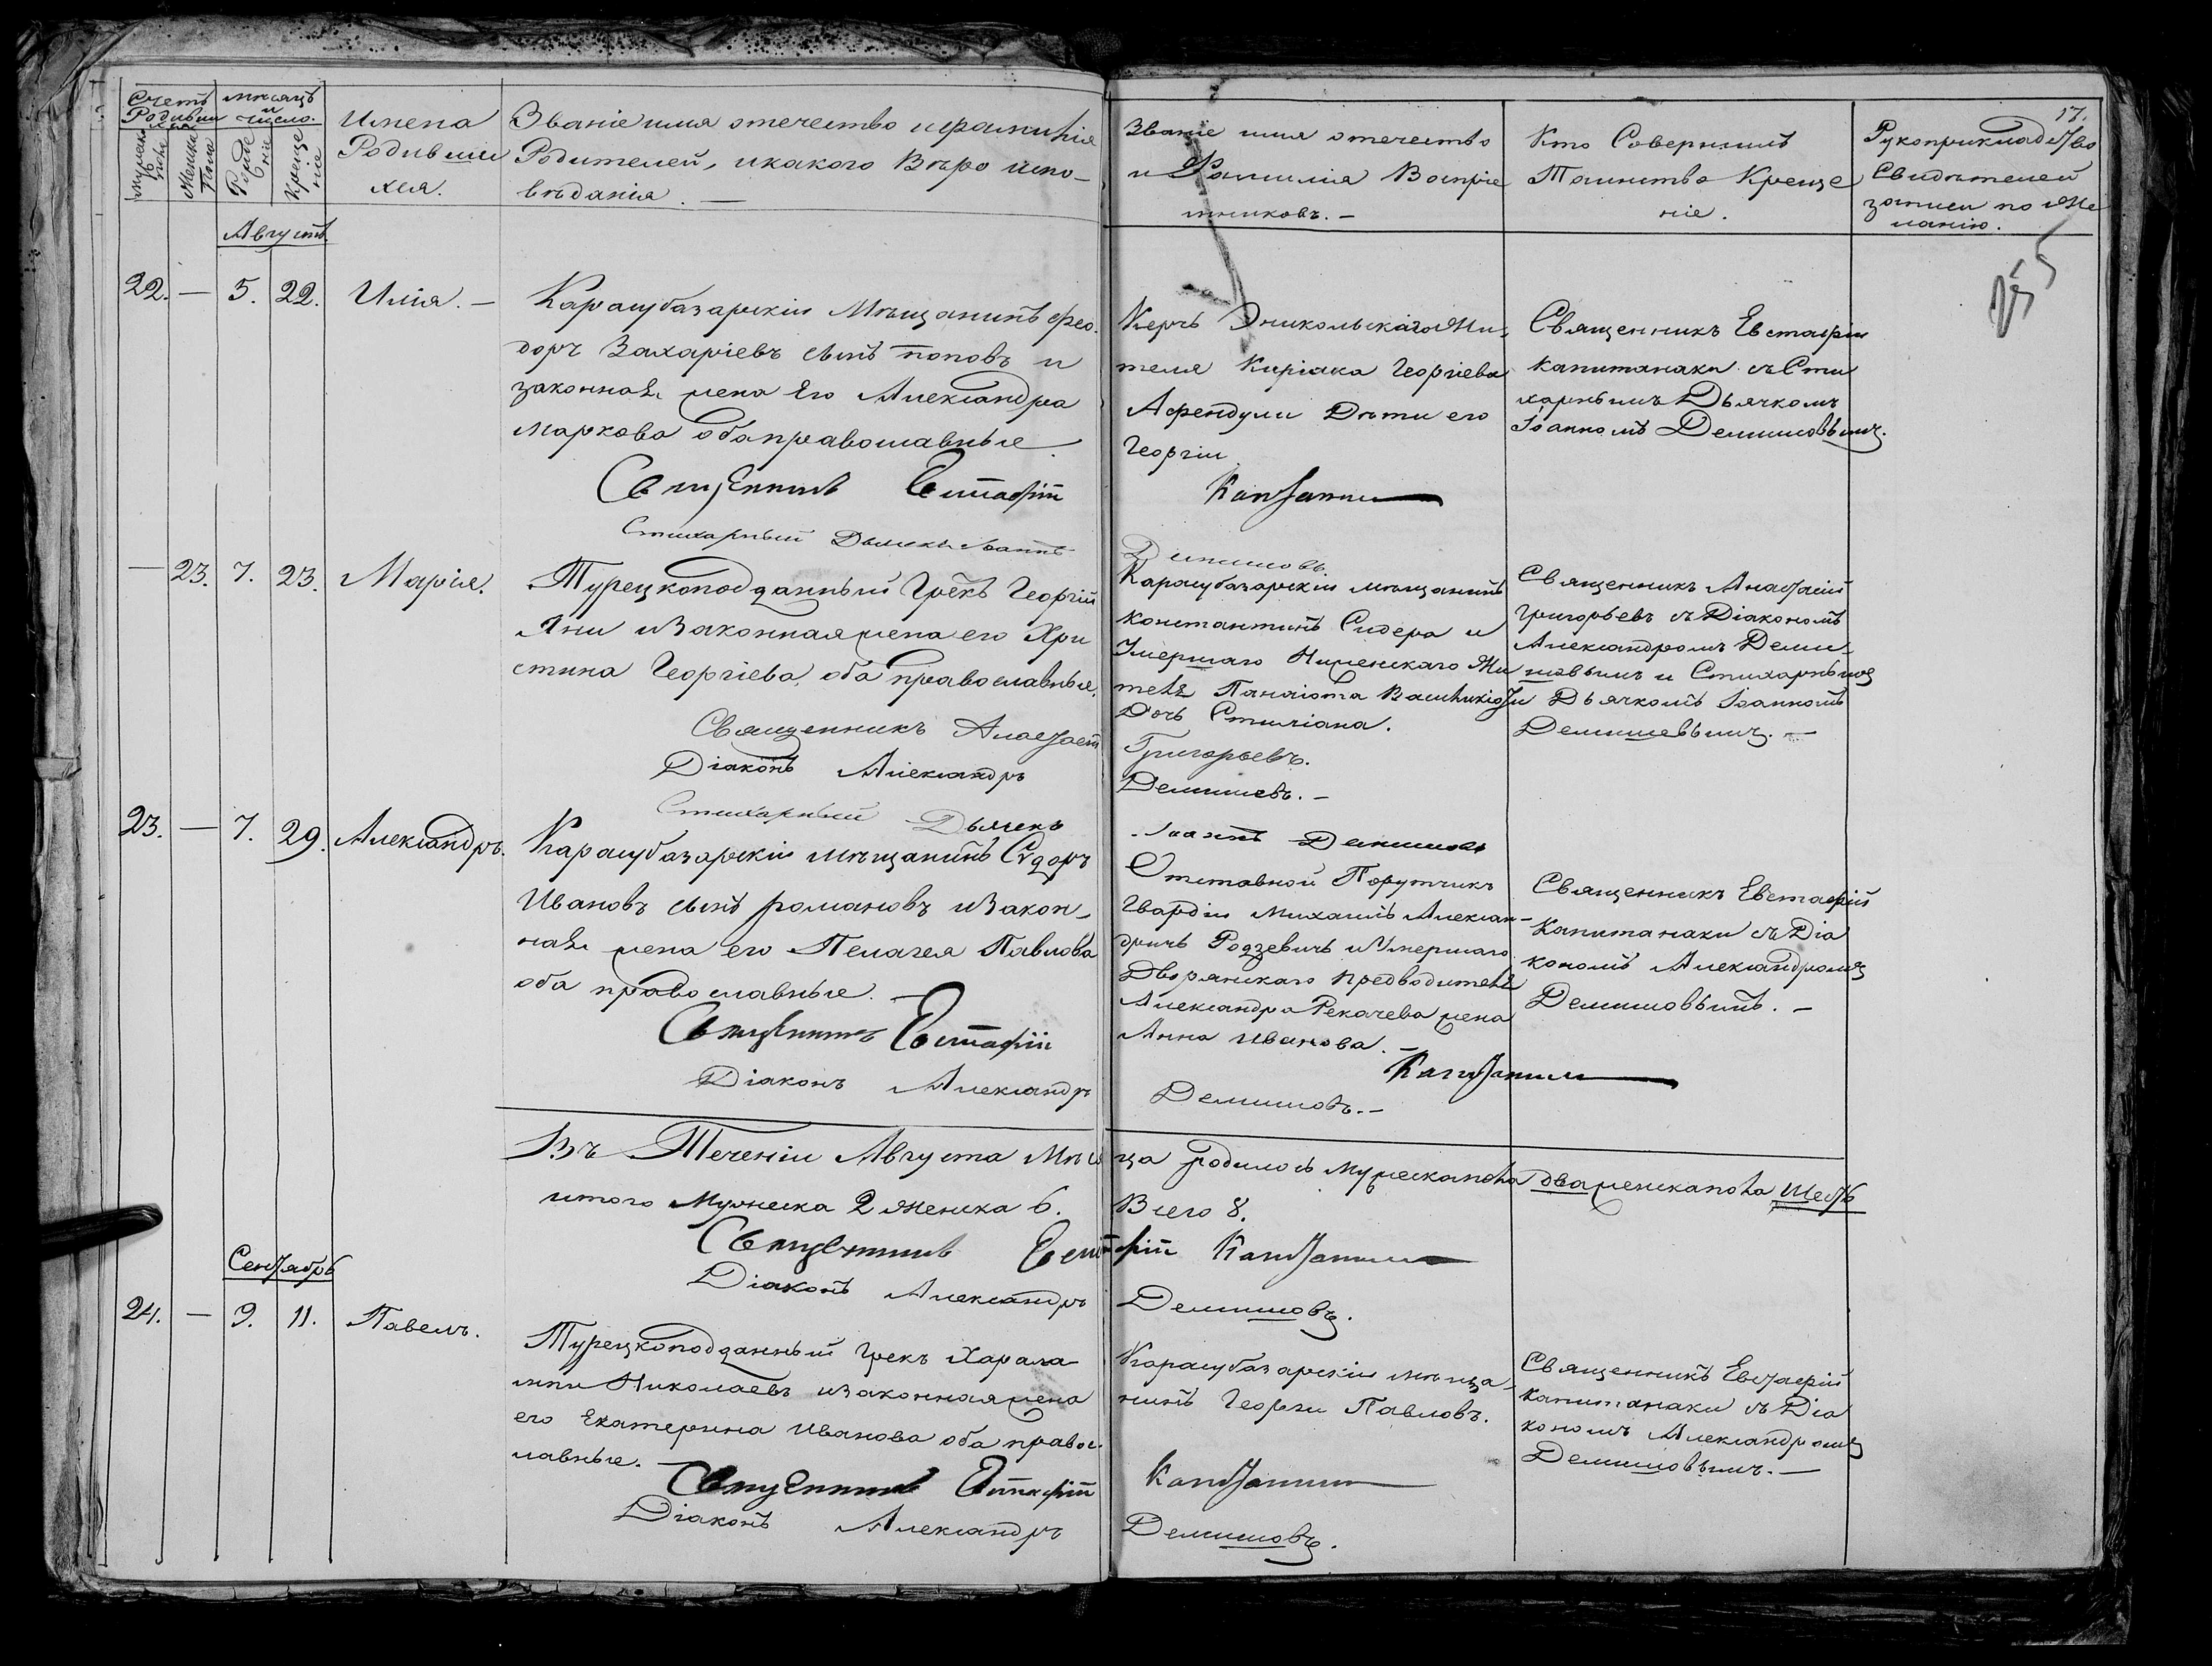 17.
Счетъ Родивши
мѣсяцъ и число.
Имена Родивши хся.
Званіе имя отечество и фамилія
Родителей, и какого Вѣро испо-
вѣданія. —
Званіе имя отечество
и Фамилія Воспріе
мниковъ. —
Кто Совершилъ
Таинство Креще
ніе.
Рукоприкладство
Свидѣтелей
записи по же
ланію.
мужеска пола
Женска Пола
Рожде ніе
Креще ніе
Августъ.
22. — 5. 22. Илія. —
Карасубазарскій Мѣщанинъ Фео-
доръ Захаріевъ сынъ поповъ и
законная жена Его Александра
Маркова оба православные.
Священникъ Евстафій
Стихарный Дьячекъ Іоаннъ
Керчь Эникольскаго Жи-
теля Киріака Георгіева
Афендули Дѣти его
Георгій
Капитанаки
Демишовъ.
Священникъ Евстафій
Капитанаки съ Сти
харнымъ Дьячкомъ
Іоанномъ Демишовымъ.
— 23. 7. 23. Марія.
Турецкоподданный Грекъ Георгій
Яни и Законная жена его Хри
стина Георгіева, оба православные.
Священникъ Анастасій
Діаконъ Александръ
Стихарный Дьячекъ
Карасубазарскій мѣщанинъ
Константинъ Сидера и
Умершаго Жи
теля Панаіота
Дочь Стиліана.
Григорьевъ.
Демишовъ. —
Іоаннъ Демишовъ
Священникъ Анастасій
Григорьевъ съ Діакономъ
Александромъ Деми-
шовымъ и Стихарнымъ
Дьячкомъ Іоанномъ
Демишевымъ. —
23. — 7. 29. Александръ.
Карасубазарскій мѣщанинъ Сидоръ
Ивановъ сынъ романовъ и Закон-
ная жена его Пелагея Павлова
оба православные. —
Священникъ Евстафій
Діаконъ Александръ
Отставной Порутчикъ
Гвардіи Михаилъ Алексан-
дричъ Родзевичъ и Умершаго
Дворянскаго предводителя
Александра Рекачева жена
Анна Иванова. —
Капитанаки
Демишовъ. —
Священникъ Евстафій
Капитанаки съ Діа
кономъ Александромъ
Демишовымъ. —
Въ Теченіи Августа Мѣсяца родилось мужеска пола два женска пола Шесть
итого Мужеска 2 Женска 6. Всего 8.
Священникъ Евстафій Капитанаки
Діаконъ Александръ Демишовъ.
Сентябрь
24. — 9. 11. Павелъ.
Турецкоподданный Грекъ Харала
мпи Николаевъ и законная жена
его Екатерина Иванова оба правос-
лавные. —
Священникъ Евстафій
Діаконъ Александръ
Карасубазарскій мѣща-
нинъ Георги Павловъ.
Капитанаки
Демишовъ.
Священникъ Евстафій
Капитанаки съ Діа
кономъ Александромъ
Демишовымъ. —